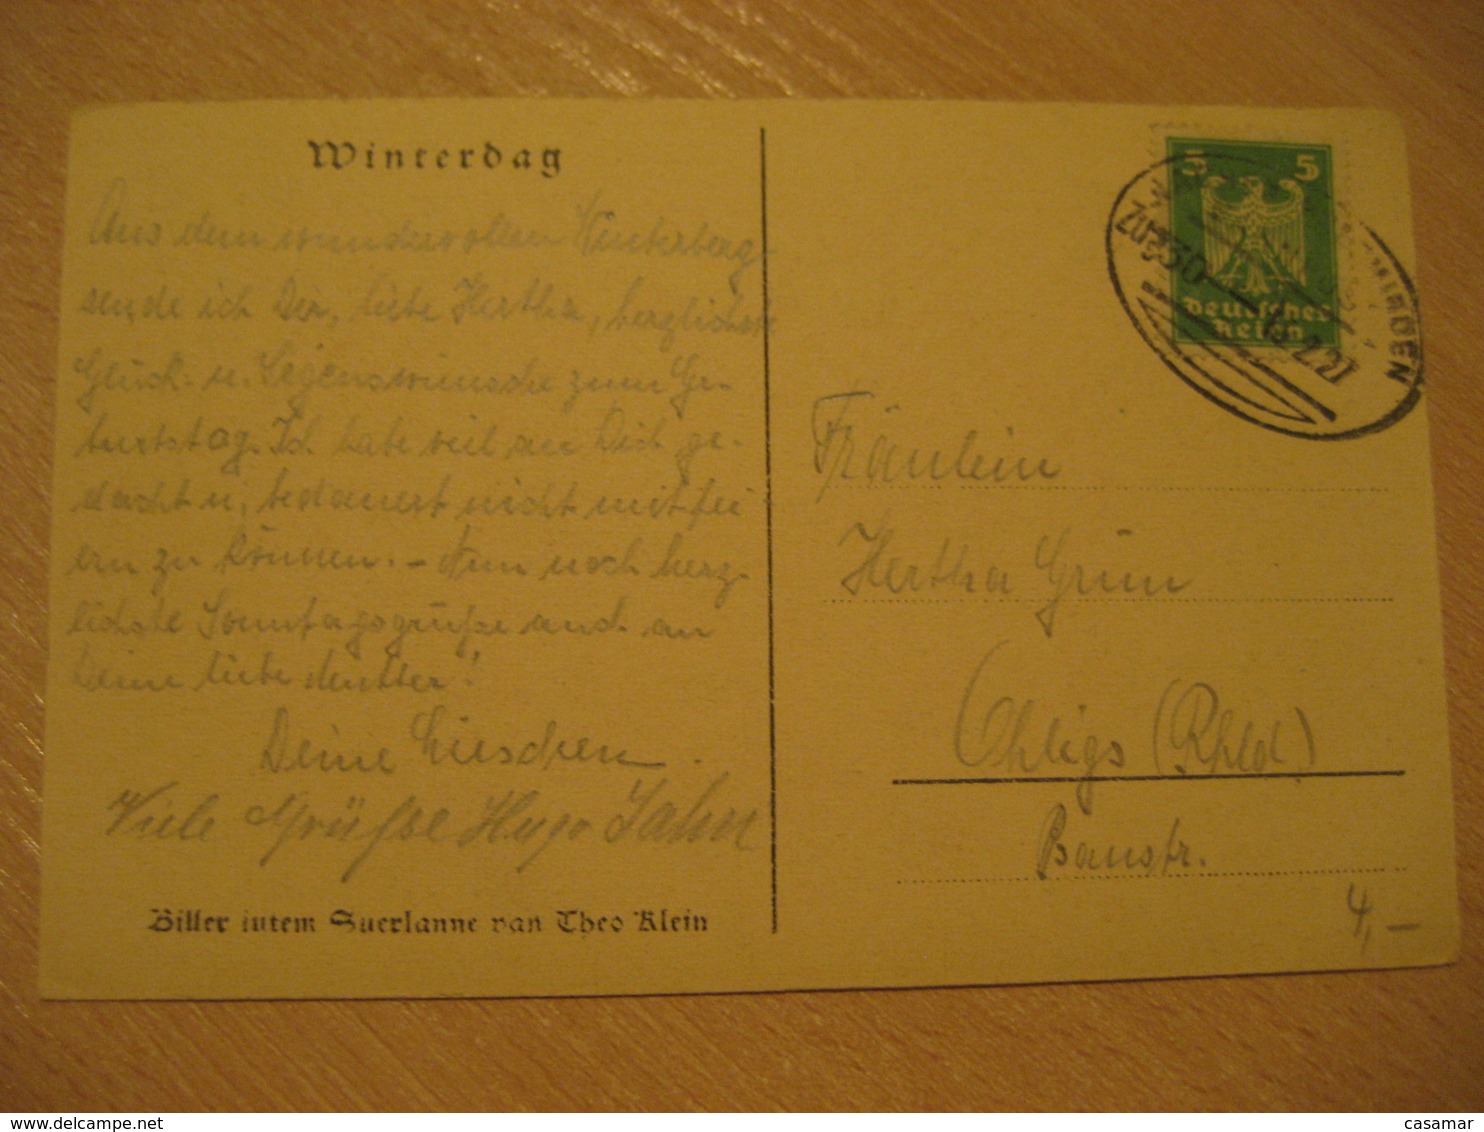 Winterdag
Aus dem wundervollen Winterberg
sende ich Dir, liebe Hertha, herzlichste
Glück- u. Segenswünsche zum Ge-
burtstag. Ich habe viel an Dich ge-
dacht u. bedauert nicht mitfei
ern zu können. – Nun noch herz-
lichste Sonntagsgrüße auch an
Deine liebe Mutter!
Deine Lieschen.
Viele Grüße Hugo Jahn
Biller iutem Suerlanne van Theo Klein
5 5
Deutsches
Reich
MINDEN
Zug
Fräulein
Hertha Grün
Ohligs (Rhld)
Baustr.
4,-
delcampe.net
casamar